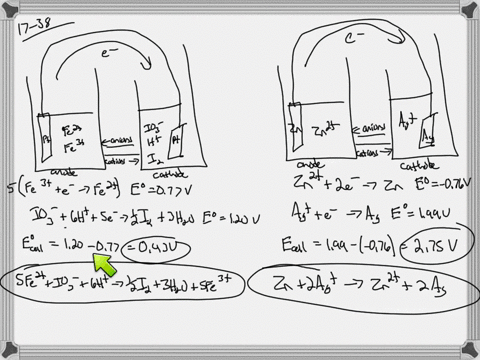 17-38
e⁻
Pt Fe²⁺ Fe³⁺ IO₃⁻ H⁺ I₂ Pt
←anions
cations→
anode cathode
5(Fe³⁺+e⁻→Fe²⁺) E°=0.77V
IO₃⁻+6H⁺+5e⁻→½I₂+3H₂O E°=1.20V
E°cell = 1.20-0.77=0.43V
5Fe²⁺+IO₃⁻+6H⁺→½I₂+3H₂O+5Fe³⁺
e⁻
Zn Zn²⁺ Ag⁺ Ag
←anions
cations→
anode cathode
Zn²⁺+2e⁻→Zn E°=-0.76V
Ag⁺+e⁻→Ag E°=1.99V
Ecell=1.99-(-0.76)=2.75V
Zn+2Ag⁺→Zn²⁺+2Ag